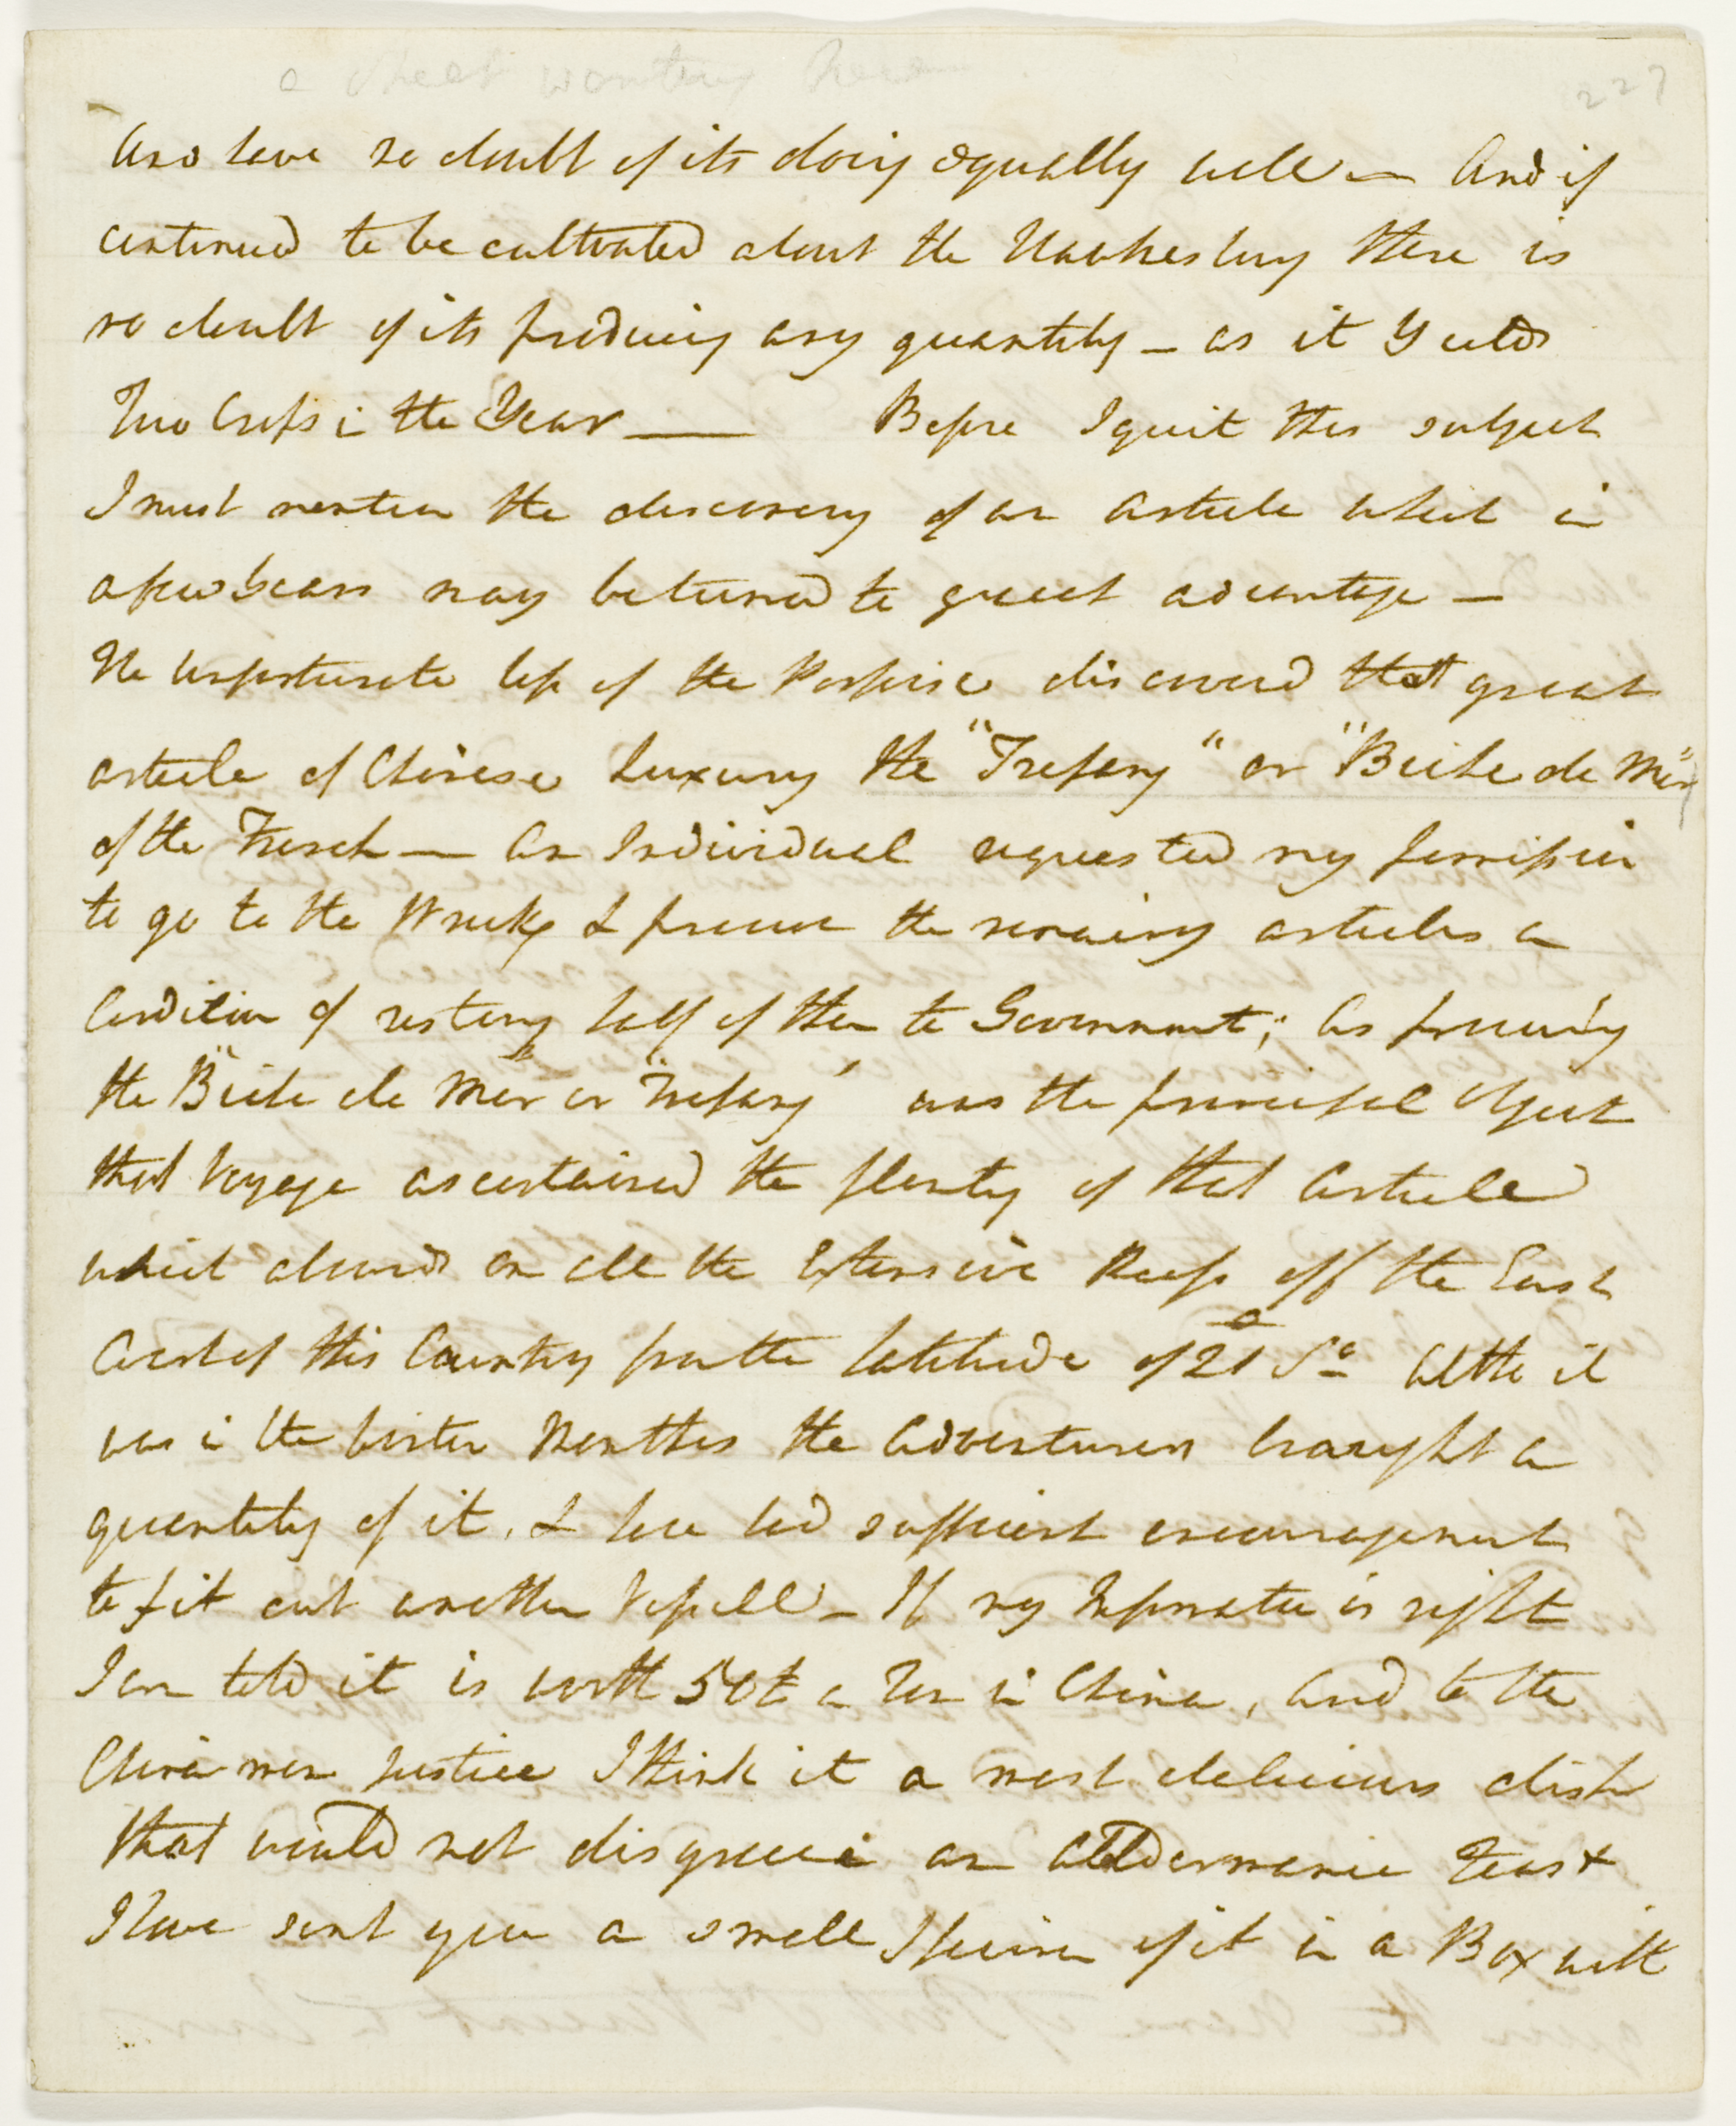 a sheet wanting here
227
And have no doubt of its doing equally well — And if
continued to be cultivated about the Hawkesbury there is
no doubt of its producing any quantity — as it Yields
Two Crops in the Year —— Before I quit this subject
I must mention the discovery of an article which in
a few Years may be turned to great advantage —
The Unfortunate loss of the Porpoise discovered that great
article of Chinese Luxury the "Trepang" or "Beche de Mer"
of the French — An Individual requested my permission
to go to the Wrecks & procure the remaining articles on
Condition of restoring half of them to Government; As procuring
the "Beche de Mer or "Trepang" was the principal object
that Voyage ascertained the plenty of that Article
which abounds on all the Extensive Reefs off the East
Coast of this Country from the latitude of 21° So Altho it
was in the Winter Months the Adventurers brought a
quantity of it, & have had sufficient encouragement
to fit out another Vessell — If my Information is right
I am told it is worth 50£ a Ton in China, And to the
China men Justice I think it a most delicious dish
that would not disgrace an Alldermanic Feast
I have sent you a small Specimen of it in a Box with